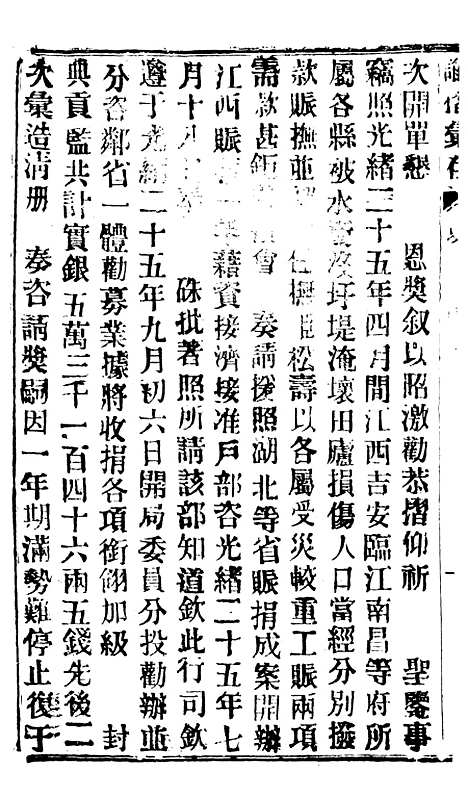 諭摺彙存
次開單懇　恩獎叙以昭激勸恭摺仰祈　聖鑒事
竊照光緒二十五年四月間江西吉安臨江南昌等府所
屬各縣被水冲沒圩堤淹壞田廬損傷人口當經分別撥
款賑撫並　任撫臣松壽以各屬受災較重工賑兩項
需款甚鉅　會　奏請援照湖北等省賑捐成案開辦
江西賑　藉資接濟接准戶部咨光緒二十五年七
月十八日奉　硃批著照所請該部知道欽此行司欽
遵于光緒二十五年九月初六日開局委員分投勸辦並
分咨鄰省一體勸募業據將收捐各項銜翎加級　封
典貢監共計實銀五萬三千一百四十六兩五錢先後二
次彙造清册　奏咨請獎嗣因一年期滿勢難停止復于